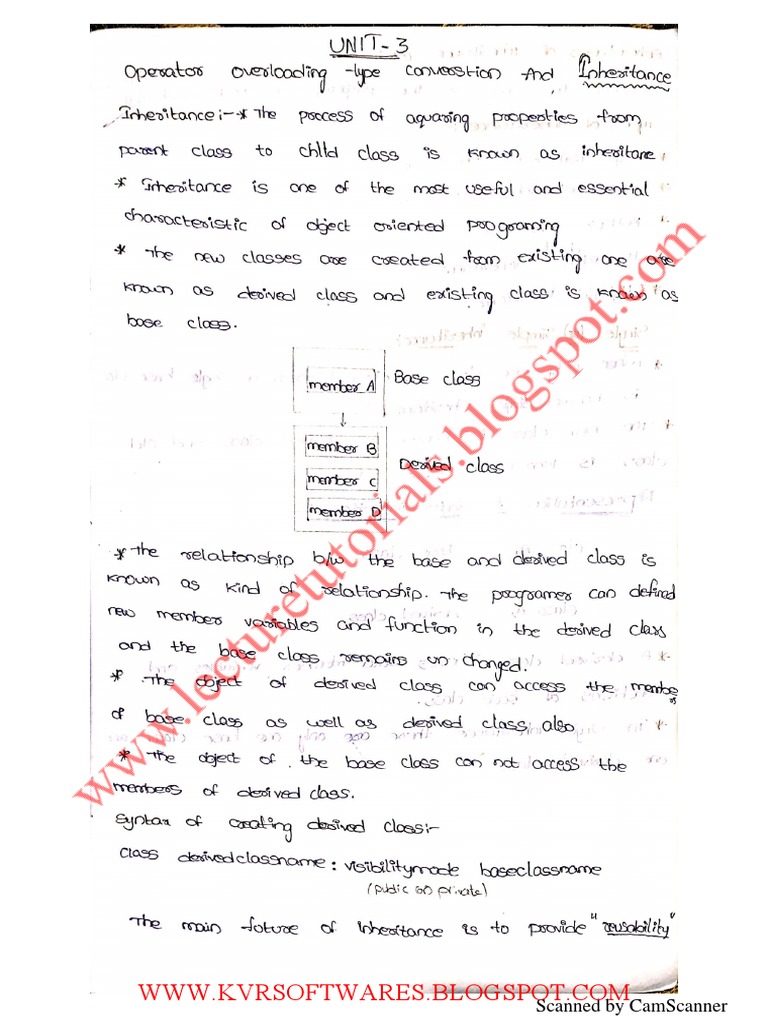 UNIT-3
Operator overloading -type converstion And Inheritance
Inheritance:-* The process of aquaring properties from
parent class to child class is known as inheritane
* Inheritance is one of the most useful and essential
characteristic of object oriented programing
* The new classes are created from existing one are
known as derived class and existing class is known as
base class.
member A Base class
member B
Derived class
member C
member D
* The relationship b/w the base and derived class is
known as kind of relationship. The programer can defined
new member variables and function in the derived class
and the base class remains un changed.
* The object of derived class can access the members
of base class as well as derived class also
* The object of the base class can not access the
members of derived class.
Syntax of creating derived class:-
Class derivedclassname : visibilitymode baseclassname
(public or private)
The main future of inheritance is to provide "reusability"
www.lecturetutorials.blogspot.com
WWW.KVRSOFTWARES.BLOGSPOT.COM
Scanned by CamScanner